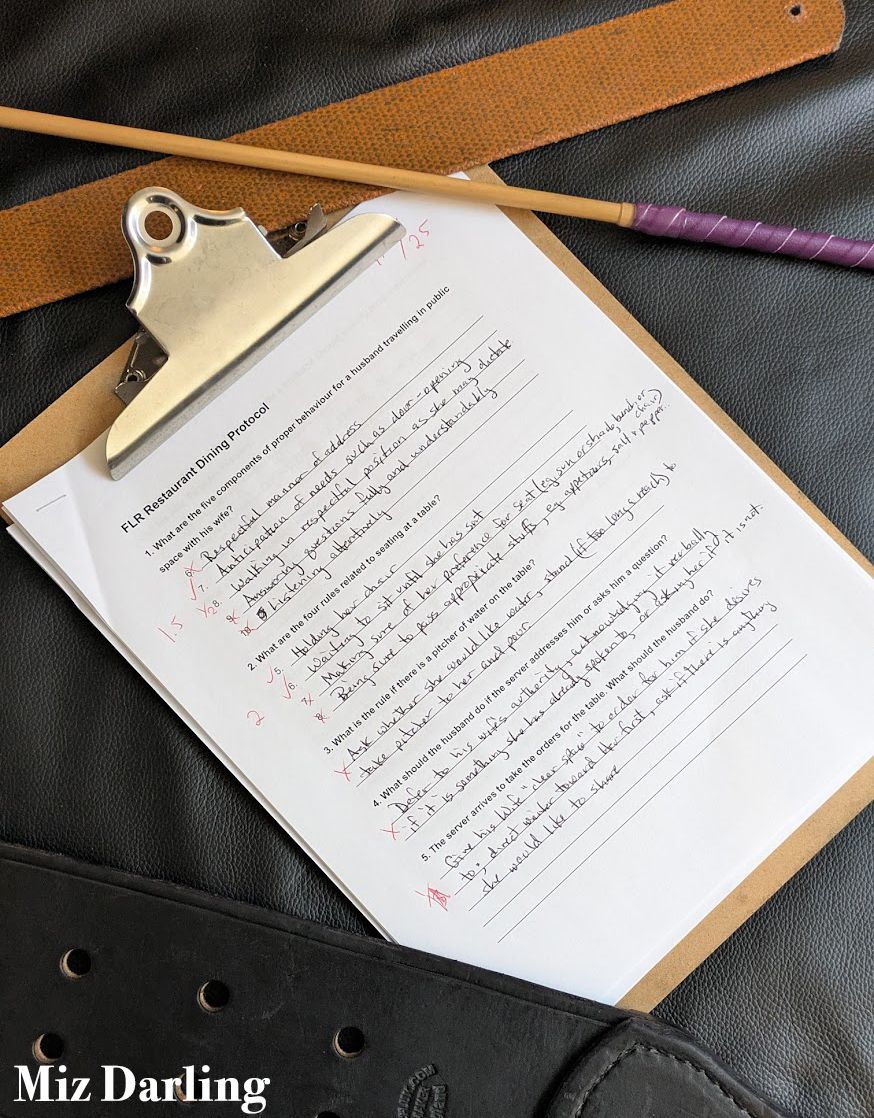 /25
FLR Restaurant Dining Protocol
1. What are the five components of proper behaviour for a husband travelling in public
space with his wife?
Respectful manner of address
7. Anticipation of needs such as door-opening
8. Walking in respectful position as she may dictate
Answering questions fully and understandably
Listening attentively
1.5
2. What are the four rules related to seating at a table?
5. Holding her chair
6. Waiting to sit until she has sat
Making sure of her preference for seat (eg sun or shade, bench, or chair)
Being sure to pass appropriate stuff, eg appetizers, salt & pepper..
2
3. What is the rule if there is a pitcher of water on the table?
Ask whether she would like water, stand (if too long a reach) to
take pitcher to her and pour
4. What should the husband do if the server addresses him or asks him a question?
Defer to his wife's authority, acknowledging it verbally
if it is something she has already spoken to, or asking her if it is not.
5. The server arrives to take the orders for the table. What should the husband do?
Give his Wife "clear space" to order for him if she desires
to; direct waiter toward Her first, ask if there is anything
she would like to share
Miz Darling